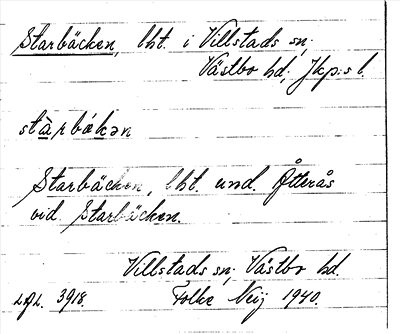 Starbäcken, lht. i Villstads sn;
Västbo hd; Jkp:s l.
stàrbákən
Starbäcken, lht. und. Åtterås
vid Starbäcken.
Villstads sn; Västbo hd.
3918 Folke Neij 1940.